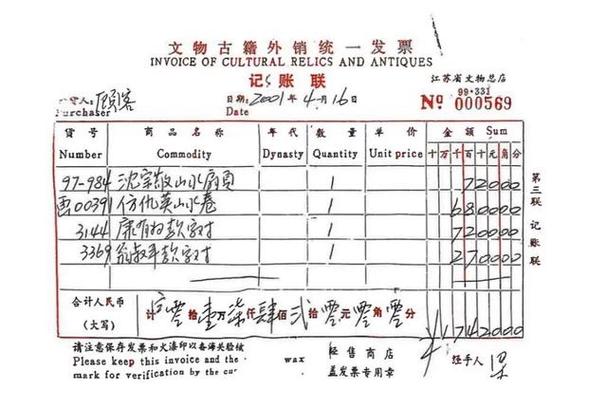 文物古籍外销统一发票
INVOICE OF CULTURAL RELICS AND ANTIQUES
记账联
江苏省文物总店
人: 顾客
Purchaser
日期: 2001年4月16日
Date
99·331
No 000569
货号 商品名称 年代 数量 单价 金额 Sum
Number Commodity Dynasty Quantity Unit price 十万千百十元角分
97-984 沈宗敬山水扇页 1 72000
00391 仿仇英山水卷 1 680000
3144 康有为款字对 1 720000
3369 翁叔平款字对 1 270000
第三联 记账联
合计人民币
(大写)
计 零拾壹万柒仟肆佰弍拾零元零角零分 ¥1742000
请注意保存发票和火漆印以备海关验核
Please keep this invoice and the wax
mark for verification by the
经售商店
盖发票专用章
经手人 梁